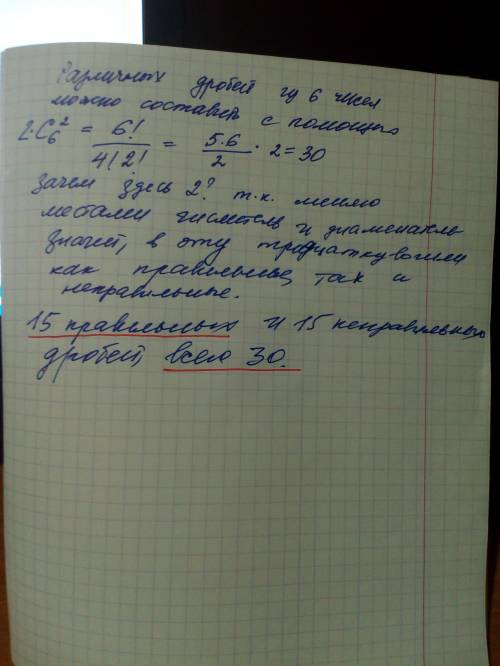 Различных дробей из 6 чисел
можно составить с помощью
2·C₆² = 6!/4!2! = 5·6/2 · 2 = 30
зачем здесь 2? т.к. меняю
местами числитель и знаменатель
значит, в эту тридцатку вошли
как правильные, так и
неправильные.
15 правильных и 15 неправильных
дробей, всего 30.